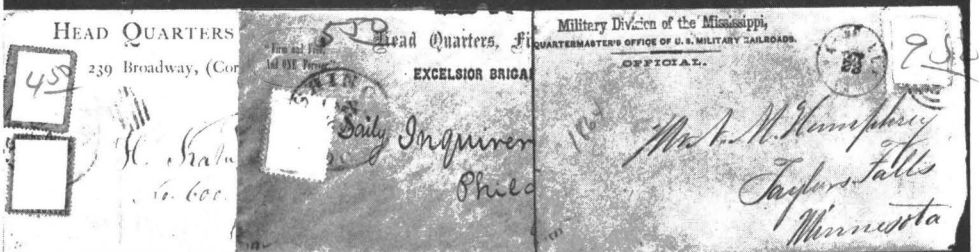 HEAD QUARTERS
239 Broadway, (Cor
450
H.
No. 600
Head Quarters, Fi
"Firm and
And ONE
EXCELSIOR BRIGA
Daily Inquirer
Phila
Military Division of the Mississippi,
QUARTERMASTER'S OFFICE OF U.S. MILITARY RAILROADS.
OFFICIAL.
1864
Mr A. M. Humphrey
Taylors Falls
Minnesota